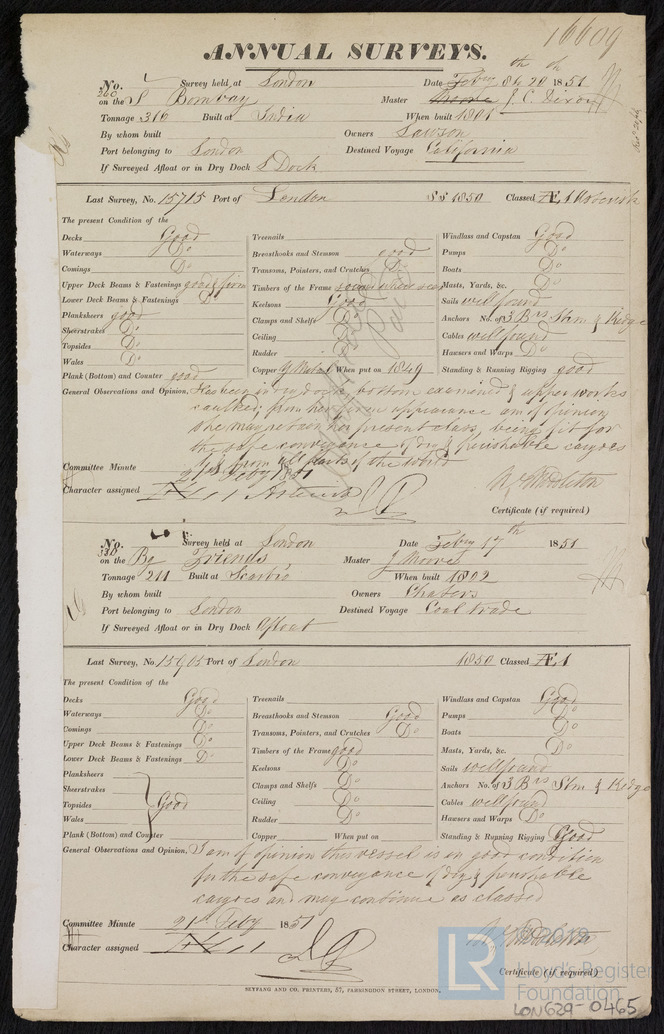 16609
ANNUAL SURVEYS.
No. 260 Survey held at London Date Feby 8th 20th 1851
on the S Bombay Master J. C. Dixon
Tonnage 316 Built at India When built 1801
By whom built Owners Lawson
Port belonging to London Destined Voyage California
If Surveyed Afloat or in Dry Dock S Dock
Last Survey, No. 15715 Port of London 1850 Classed Æ 1
The present Condition of the
Decks Good Treenails Windlass and Capstan Good
Waterways Do Breasthooks and Stemson good Pumps Do
Comings Do Transoms, Pointers, and Crutches Do Boats Do
Upper Deck Beams & Fastenings good & firm Timbers of the Frame sound where seen Masts, Yards, &c. Do
Lower Deck Beams & Fastenings Do Keelsons Good Sails well found
Planksheers good Clamps and Shelfs Do Anchors No. of 3 Brs Strm & Kedge
Sheerstrakes Do Ceiling Do Cables well found
Topsides Do Rudder Do Hawsers and Warps Do
Wales Do Copper Y Metal When put on 1849 Standing & Running Rigging good
Plank (Bottom) and Counter good
General Observations and Opinion, Has been in dry dock, bottom examined & upper works
caulked; from her firm appearance am of opinion
she may retain her present class, being fit for
the safe conveyance of dry & perishable cargoes
to & from all parts of the world
Committee Minute 21st Feby 1851
Character assigned
Certificate (if required)
No. 330 Survey held at London Date Feby 17th 1851
on the Bg Friends Master J Moore
Tonnage 211 Built at Scarbro When built 1802
By whom built Owners Chabers
Port belonging to London Destined Voyage Coal trade
If Surveyed Afloat or in Dry Dock Afloat
Last Survey, No. 15905 Port of London 1850 Classed Æ 1
The present Condition of the
Decks Good Treenails Windlass and Capstan Good
Waterways Do Breasthooks and Stemson Good Pumps Do
Comings Do Transoms, Pointers, and Crutches Do Boats Do
Upper Deck Beams & Fastenings Do Timbers of the Frame good Masts, Yards, &c. Do
Lower Deck Beams & Fastenings Do Keelsons Do Sails well found
Planksheers Clamps and Shelfs Do Anchors No. of 3 Brs Strm & Kedge
Sheerstrakes Ceiling Do Cables well found
Topsides Good Rudder Do Hawsers and Warps Do
Wales Copper When put on Standing & Running Rigging Good
Plank (Bottom) and Counter
General Observations and Opinion, I am of opinion this vessel is in good condition
for the safe conveyance of dry & perishable
cargoes and may continue as classed
Committee Minute 21st Feby 1851
Character assigned
Certificate (if required)
SEYFANG AND CO. PRINTERS, 57, FARRINGDON STREET, LONDON.
LR © 2019
Lloyd's Register
Foundation
LON629-0465